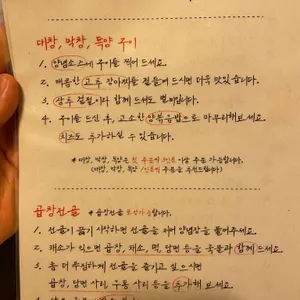 대창, 막창, 특양 구이
1. 양념소스에 구이를 찍어 드세요.
2. 매콤한 고추 장아찌를 곁들여 드시면 더욱 맛있습니다.
3. 상추 겉절이와 함께 드셔도 별미입니다.
4. 구이를 드신 후, 고소한 양볶음밥으로 마무리해보세요.
치즈도 추가하실 수 있습니다.
* 대창, 막창, 특양은 첫 주문시 이상 주문 가능합니다.
(대창, 막창, 특양 주문을 추천드립니다)
곱창전골 * 곱창전골 포장가능합니다.
1. 전골이 끓기 시작하면 전골을 저어 양념장을 풀어주세요.
2. 채소가 익으면 곱창, 채소, 떡, 당면 등을 국물과 함께 드세요.
3. 좀 더 푸짐하게 전골을 즐기고 싶으시면
곱창, 당면 사리, 우동 사리 등을 추가해 보세요.